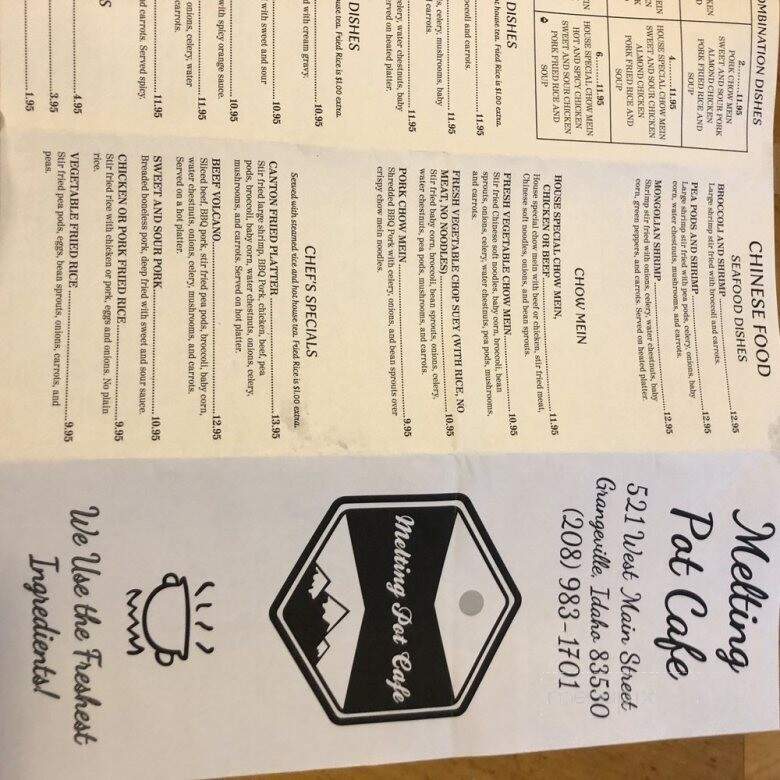 COMBINATION DISHES
2..........11.95
PORK CHOW MEIN
SWEET AND SOUR PORK
ALMOND CHICKEN
PORK FRIED RICE AND
SOUP
4..........11.95
HOUSE SPECIAL CHOW MEIN
SWEET AND SOUR CHICKEN
ALMOND CHICKEN
PORK FRIED RICE AND
SOUP
6..........11.95
HOUSE SPECIAL CHOW MEIN
HOT AND SPICY CHICKEN
SWEET AND SOUR CHICKEN
PORK FRIED RICE AND
SOUP
DISHES
hot house tea. Fried Rice is $1.00 extra.
broccoli and carrots.
11.95
celery, mushrooms, baby
11.95
celery, water chestnuts, baby
served on heated platter.
DISHES
house tea. Fried Rice is $1.00 extra.
10.95
ed with cream gravy.
10.95
d with sweet and sour
10.95
with spicy orange sauce.
11.95
onions, celery, water
carrots.
11.95
nd carrots. Served spicy.
4.95
3.95
1.95
CHINESE FOOD
SEAFOOD DISHES
BROCCOLI AND SHRIMP..........12.95
Large shrimp stir fried with broccoli and carrots.
PEA PODS AND SHRIMP..........12.95
Large shrimp stir fried with pea pods, celery, onions, baby
corn, water chestnuts, mushrooms, and carrots.
MONGOLIAN SHRIMP..........12.95
Shrimp stir fried with onions, celery, water chestnuts, baby
corn, green peppers, and carrots. Served on heated platter.
CHOW MEIN
HOUSE SPECIAL CHOW MEIN,
CHICKEN OR BEEF..........11.95
House special chow mein with beef or chicken, stir fried meat,
Chinese soft noodles, onions, and bean sprouts.
FRESH VEGETABLE CHOW MEIN..........10.95
Stir fried Chinese soft noodles, baby corn, broccoli, bean
sprouts, onions, celery, water chestnuts, pea pods, mushrooms,
and carrots.
FRESH VEGETABLE CHOP SUEY (WITH RICE, NO
MEAT, NO NOODLES)..........10.95
Stir fried baby corn, broccoli, bean sprouts, onions, celery,
water chestnuts, pea pods, mushrooms, and carrots.
PORK CHOW MEIN..........9.95
Shredded BBQ Pork with celery, onions, and bean sprouts over
crispy chow mein noodles.
CHEF'S SPECIALS
Served with steamed rice and hot house tea. Fried Rice is $1.00 extra.
CANTON FRIED PLATTER..........13.95
Stir fried large shrimp, BBQ Pork, chicken, beef, pea
pods, broccoli, baby corn, water chestnuts, onions, celery,
mushrooms, and carrots. Served on hot platter.
BEEF VOLCANO..........12.95
Sliced beef, BBQ pork, stir fried pea pods, broccoli, baby corn,
water chestnuts, onions, celery, mushrooms, and carrots.
Served on a hot platter.
SWEET AND SOUR PORK..........10.95
Breaded boneless pork, deep fried with sweet and sour sauce.
CHICKEN OR PORK FRIED RICE..........9.95
Stir fried rice with chicken or pork, eggs and onions. No plain
rice.
VEGETABLE FRIED RICE..........9.95
Stir fried pea pods, eggs, bean sprouts, onions, carrots, and
peas.
Melting
Pot Cafe
521 West Main Street
Grangeville, Idaho 83530
(208) 983-1701
Melting Pot Cafe
We Use the Freshest
Ingredients!